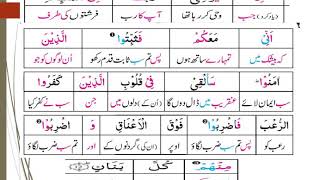 (یاد کرو) جب وحی کر رہا تھا آپ کا رب فرشتوں کی طرف
٦
اَنِّیْ مَعَكُمْ فَثَبِّتُوا الَّذِیْنَ
کہ بیشک میں تمہارے ساتھ ہوں پس تم سب ثابت قدم رکھو اُن لوگوں کو جو
اٰمَنُوْا سَاُلْقِیْ فِیْ قُلُوْبِ الَّذِیْنَ كَفَرُوا
سب ایمان لائے عنقریب میں ڈال دوں گا (اُن کے) دلوں میں جن سب نے کفر کیا
الرُّعْبَ فَاضْرِبُوْا فَوْقَ الْاَعْنَاقِ وَ اضْرِبُوْا
رعب کو پس تم سب ضرب لگاؤ اوپر (ان کی) گردنوں کے اور تم سب ضرب لگاؤ
مِنْهُمْ كُلَّ بَنَانٍ